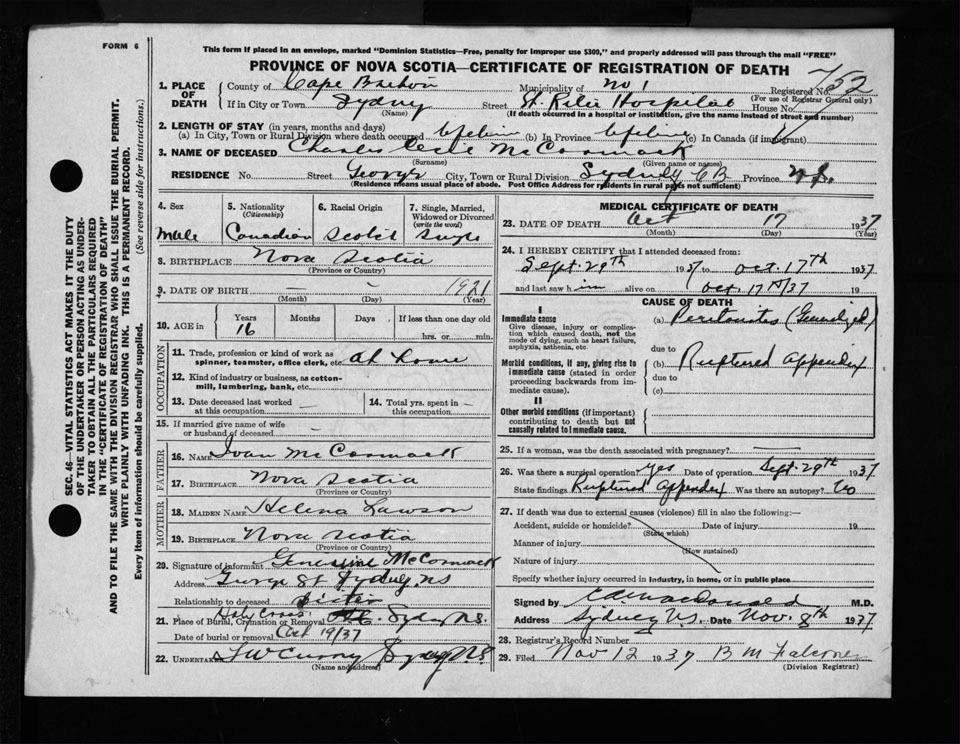 FORM 6
This form if placed in an envelope, marked "Dominion Statistics—Free, penalty for improper use $300," and properly addressed will pass through the mail "FREE"
PROVINCE OF NOVA SCOTIA—CERTIFICATE OF REGISTRATION OF DEATH
1. PLACE OF DEATH
County of Cape Breton Municipality of No 1 Registered No. 752
(For use of Registrar General only)
If in City or Town Sydney Street St. Rita Hospital House No.
(Name) (If death occurred in a hospital or institution, give the name instead of street and number)
2. LENGTH OF STAY (in years, months and days)
(a) In City, Town or Rural Division where death occurred Lifetime (b) In Province Lifetime (c) In Canada (if immigrant)
3. NAME OF DECEASED Charles McCormack
(Surname) (Given name or names)
RESIDENCE No. Street George City, Town or Rural Division Sydney CB Province N.S.
(Residence means usual place of abode. Post Office Address for residents in rural parts not sufficient)
4. Sex Male
5. Nationality (Citizenship) Canadian
6. Racial Origin Scotch
7. Single, Married, Widowed or Divorced (write the word) Single
8. BIRTHPLACE Nova Scotia
(Province or Country)
9. DATE OF BIRTH — — 1921
(Month) (Day) (Year)
10. AGE in Years 16 Months Days If less than one day old hrs. or min.
OCCUPATION
11. Trade, profession or kind of work as spinner, teamster, office clerk, etc. At home
12. Kind of industry or business, as cotton-mill, lumbering, bank, etc.
13. Date deceased last worked at this occupation —
14. Total yrs. spent in this occupation —
15. If married give name of wife or husband of deceased —
FATHER
16. NAME Ivan McCormack
17. BIRTHPLACE Nova Scotia
(Province or Country)
MOTHER
18. MAIDEN NAME Helena Lawson
19. BIRTHPLACE Nova Scotia
(Province or Country)
20. Signature of informant Genevieve McCormack
Address George St Sydney NS
Relationship to deceased Sister
21. Place of Burial, Cremation or Removal Holy Cross Sydney N.S.
Date of burial or removal Oct 19/37
22. UNDERTAKER T W Curry Sydney N.S.
(Name and address)
MEDICAL CERTIFICATE OF DEATH
23. DATE OF DEATH Oct 17 1937
(Month) (Day) (Year)
24. I HEREBY CERTIFY that I attended deceased from:
Sept. 29th 1937 to Oct. 17th 1937
and last saw him alive on Oct. 17th/37 19
CAUSE OF DEATH
I
Immediate cause
Give disease, injury or complication which caused death, not the mode of dying, such as heart failure, asphyxia, asthenia, etc.
(a) Peritonitis (Generalized)
due to
Morbid conditions, if any, giving rise to immediate cause (stated in order proceeding backwards from immediate cause).
(b) Ruptured Appendix
due to
(c)
II
Other morbid conditions (if important) contributing to death but not causally related to immediate cause.
25. If a woman, was the death associated with pregnancy? —
26. Was there a surgical operation? Yes Date of operation Sept. 29th 1937
State findings Ruptured Appendix Was there an autopsy? No
27. If death was due to external causes (violence) fill in also the following:—
Accident, suicide or homicide? Date of injury 19
(State which)
Manner of injury
(How sustained)
Nature of injury
Specify whether injury occurred in industry, in home, or in public place
Signed by M.D.
Address Sydney N.S. Date Nov. 8th 1937
28. Registrar's Record Number
29. Filed Nov 12 1937 B M Falconer
(Division Registrar)
SEC. 46—VITAL STATISTICS ACT MAKES IT THE DUTY
OF THE UNDERTAKER OR PERSON ACTING AS UNDER-
TAKER TO OBTAIN ALL THE PARTICULARS REQUIRED
IN THE "CERTIFICATE OF REGISTRATION OF DEATH"
AND TO FILE THE SAME WITH THE DIVISION REGISTRAR WHO SHALL ISSUE THE BURIAL PERMIT.
WRITE PLAINLY WITH UNFADING INK. THIS IS A PERMANENT RECORD.
Every item of information should be carefully supplied. (See reverse side for instructions.)